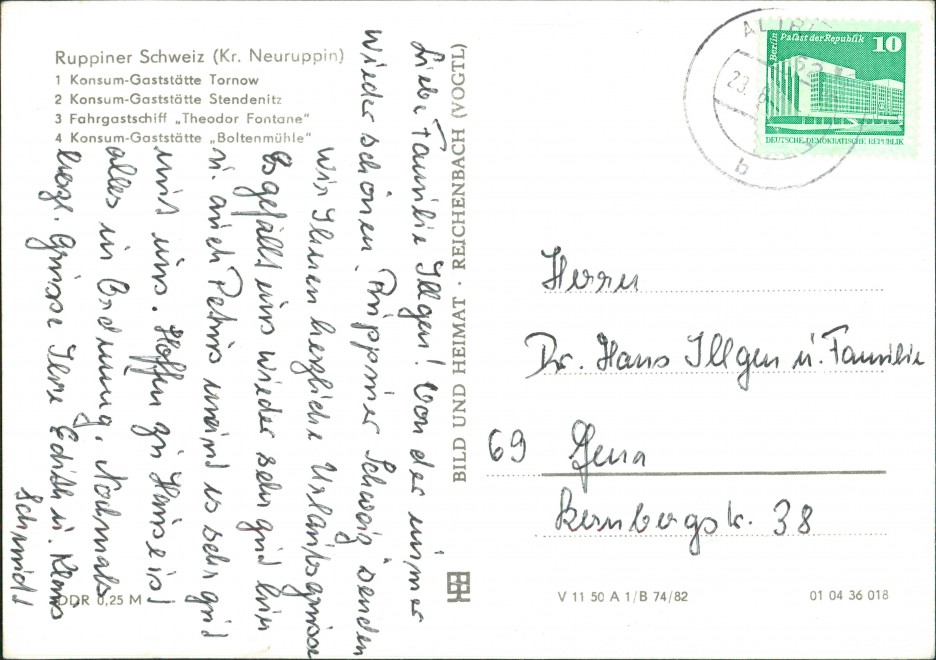 Ruppiner Schweiz (Kr. Neuruppin)
1 Konsum-Gaststätte Tornow
2 Konsum-Gaststätte Stendenitz
3 Fahrgastschiff „Theodor Fontane“
4 Konsum-Gaststätte „Boltenmühle“
Liebe Familie Illgen! Von der immer
wieder schönen Ruppiner Schweiz senden
wir Ihnen herzliche Urlaubsgrüsse
Es gefällt uns wieder sehr gut hier
u. auch Petrus meint es sehr gut
mit uns. Hoffen zu Hause ist
alles in Ordnung. Nochmals
herzl. Grüsse Ihre Edith u. Klaus
Schmidt
DDR 0,25 M
BILD UND HEIMAT · REICHENBACH (VOGTL)
Berlin Palast der Republik 10
DEUTSCHE DEMOKRATISCHE REPUBLIK
23.
b
Herrn
Dr. Hans Illgen u. Familie
69 Jena
38
V 11 50 A 1/B 74/82
01 04 36 018